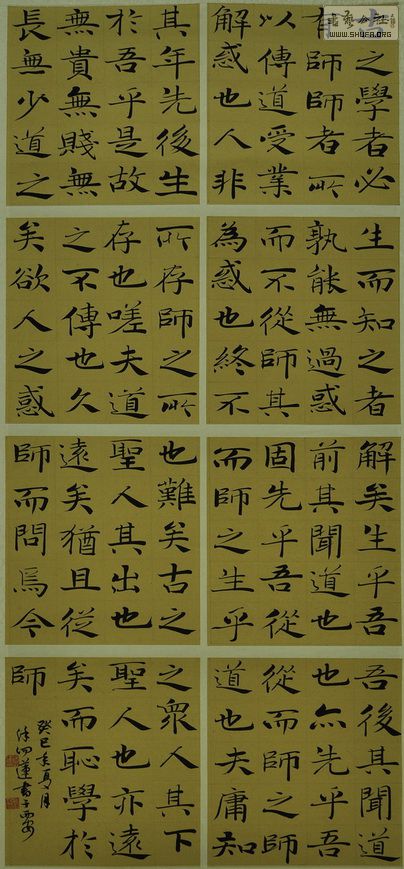 WWW.SHUFA.ORG
之學者必
有師師者所
以傳道受業
解惑也人非
生而知之者
孰能無過惑
而不從師其
為惑也終不
解矣生乎吾
前其聞道也
固先乎吾從
而師之生乎
吾後其聞道
也亦先乎吾
從而師之師
道也夫庸知
其年先後生
於吾乎是故
無貴無賤無
長無少道之
所存師之所
存也嗟夫道
之不傳也久
矣欲人之惑
也難矣古之
聖人其出也
遠矣猶且從
師而問焉今
之衆人其下
聖人也亦遠
矣而恥學於
師
癸巳季夏月
蓮書于西安